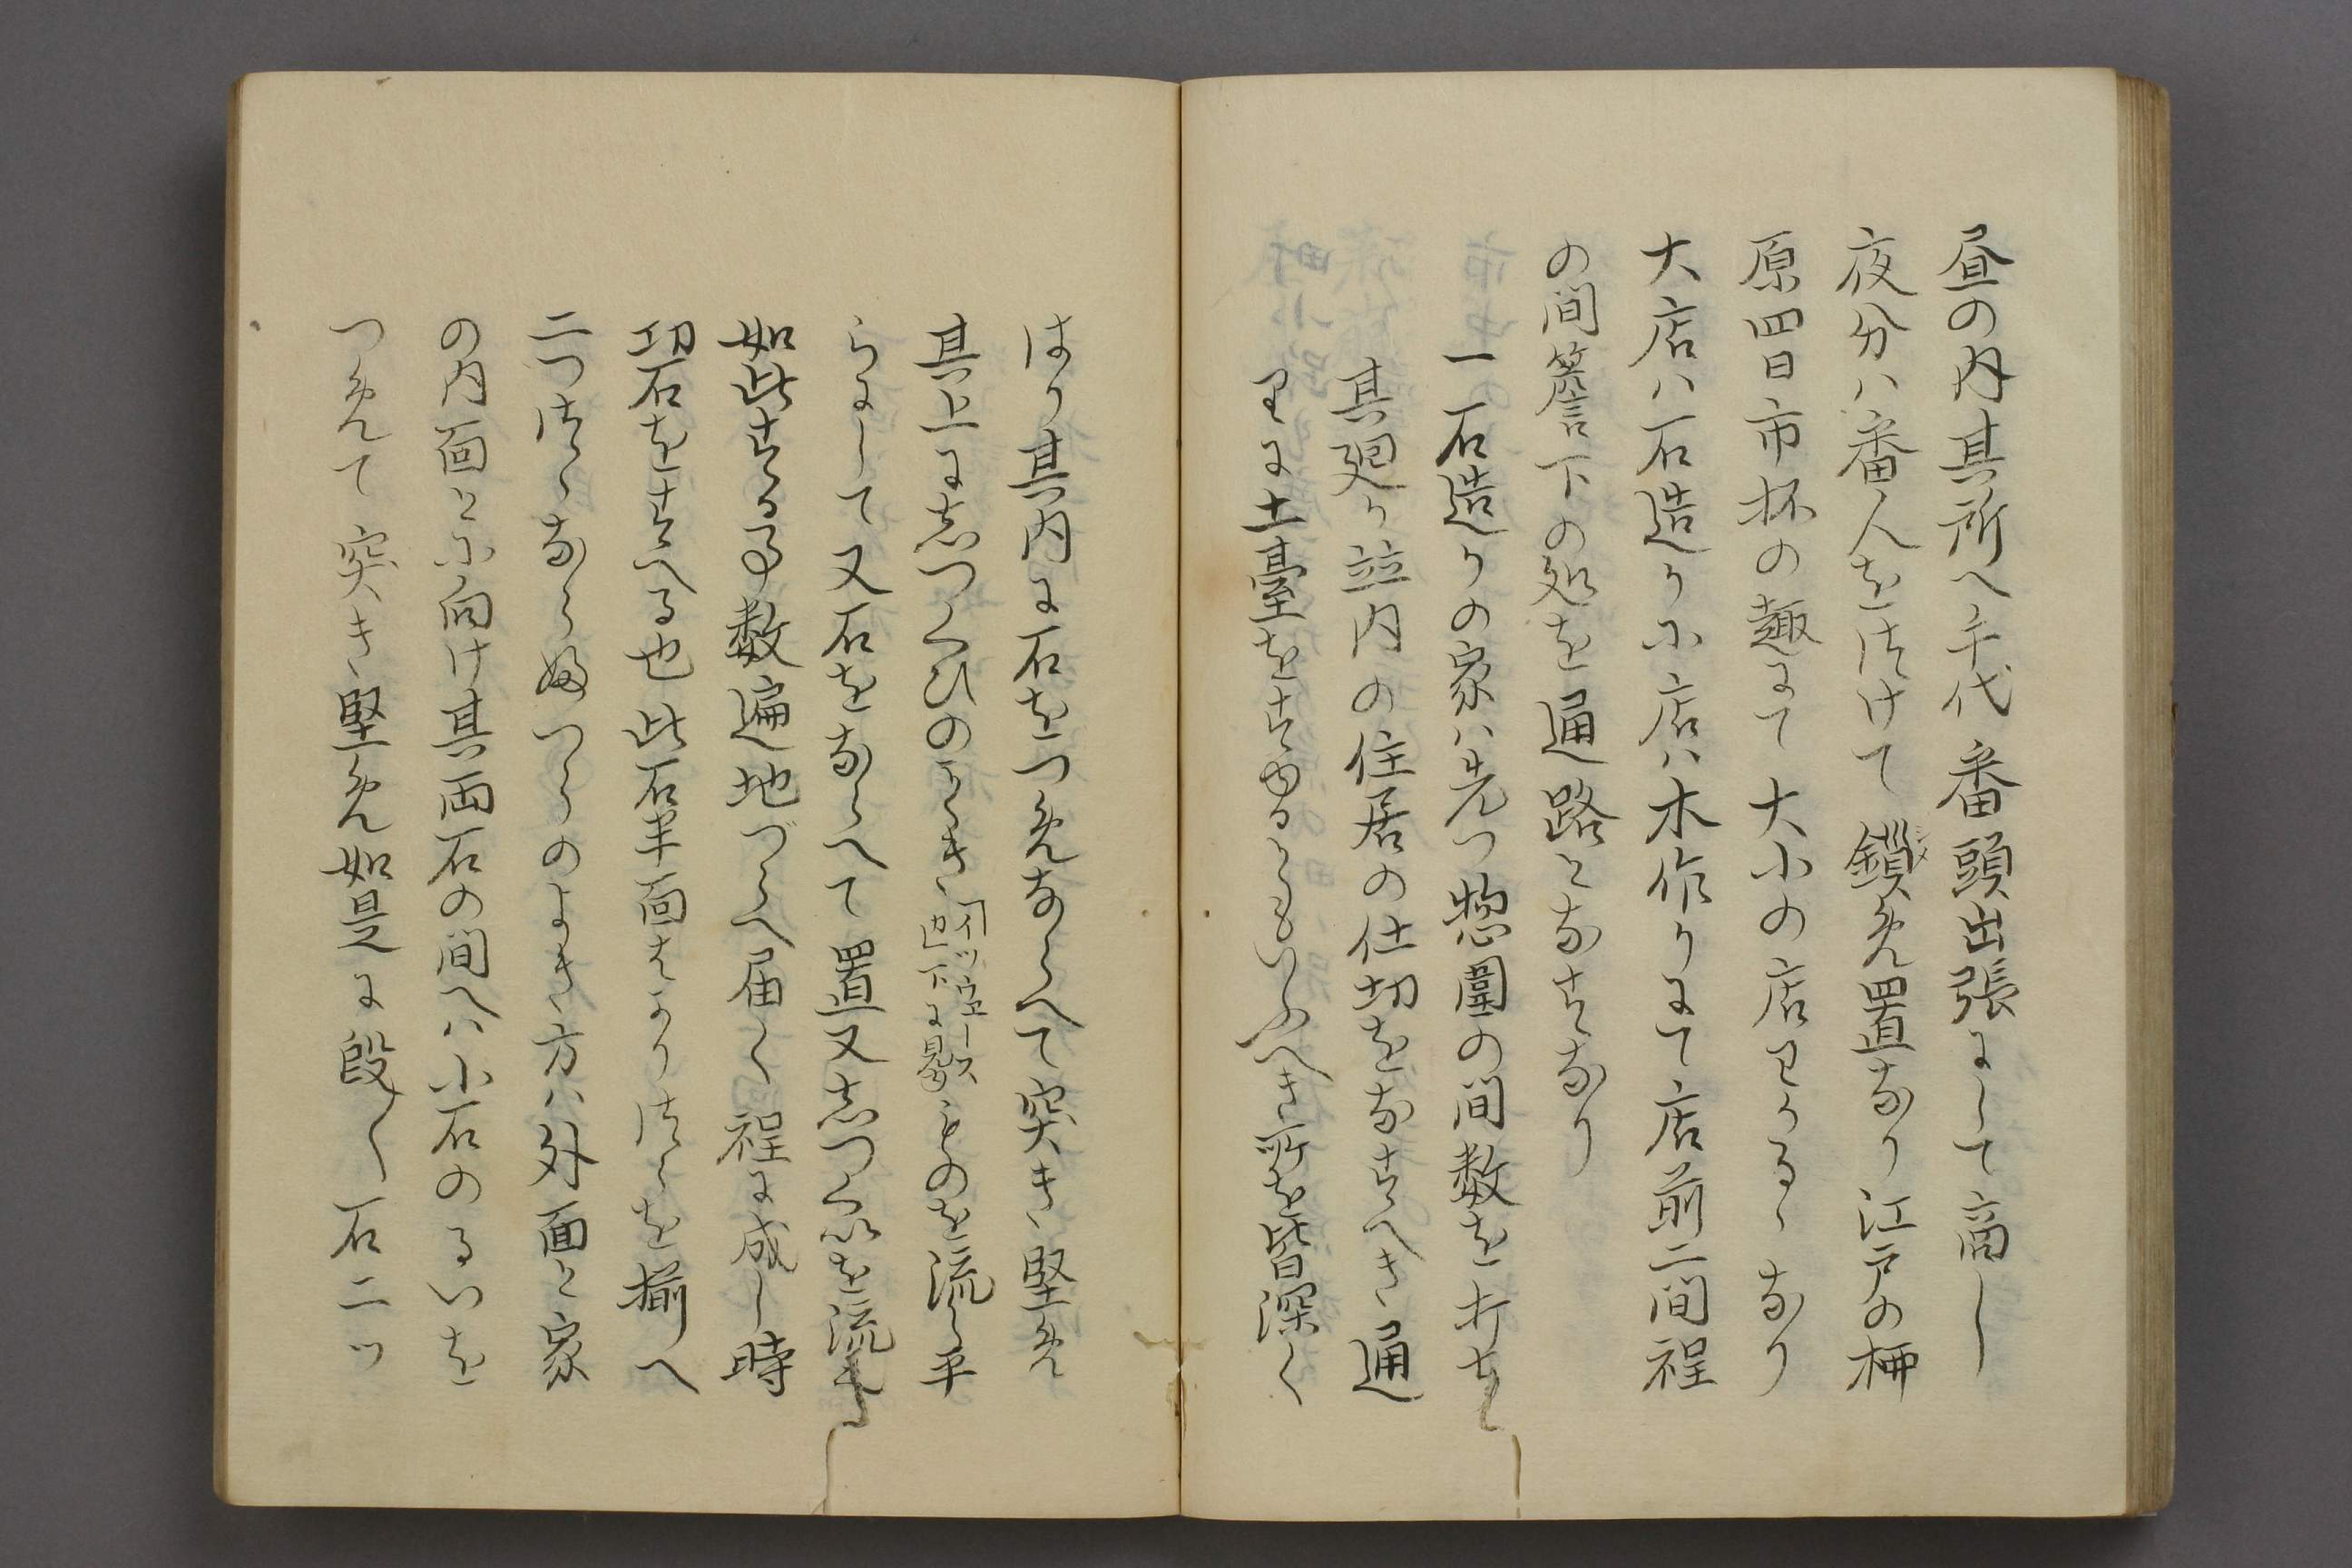 昼の内其所へ手代番頭出張にして商し
夜分ハ番人を付けて鎖め置なり江戸の柳
原四日市杯の趣にて大小の店わかるゝなり
大店ハ石造り小店ハ木作りにて店前二間程
の間簷下の処を通路となすなり
一石造りの家ハ先つ惣圍の間数を打ち
其廻り並内の住居の仕切をなすへき通
りに土臺をすゆるともいふへき所を皆深く
はり其内に石をつめならへて突き堅め
其上に志つくひのことき
ものを流し平
らにして又石をならへて置又志つくいを流し
如此する事数遍地づらへ届く程に成し時
切石をすへる也此石半面はかりつらを揃へ
二つ つゝならふつらのよき方ハ外面と家
の内面とに向け其両石の間へハ小石のるいを
つめて突き堅め如是に段〱石二ッ